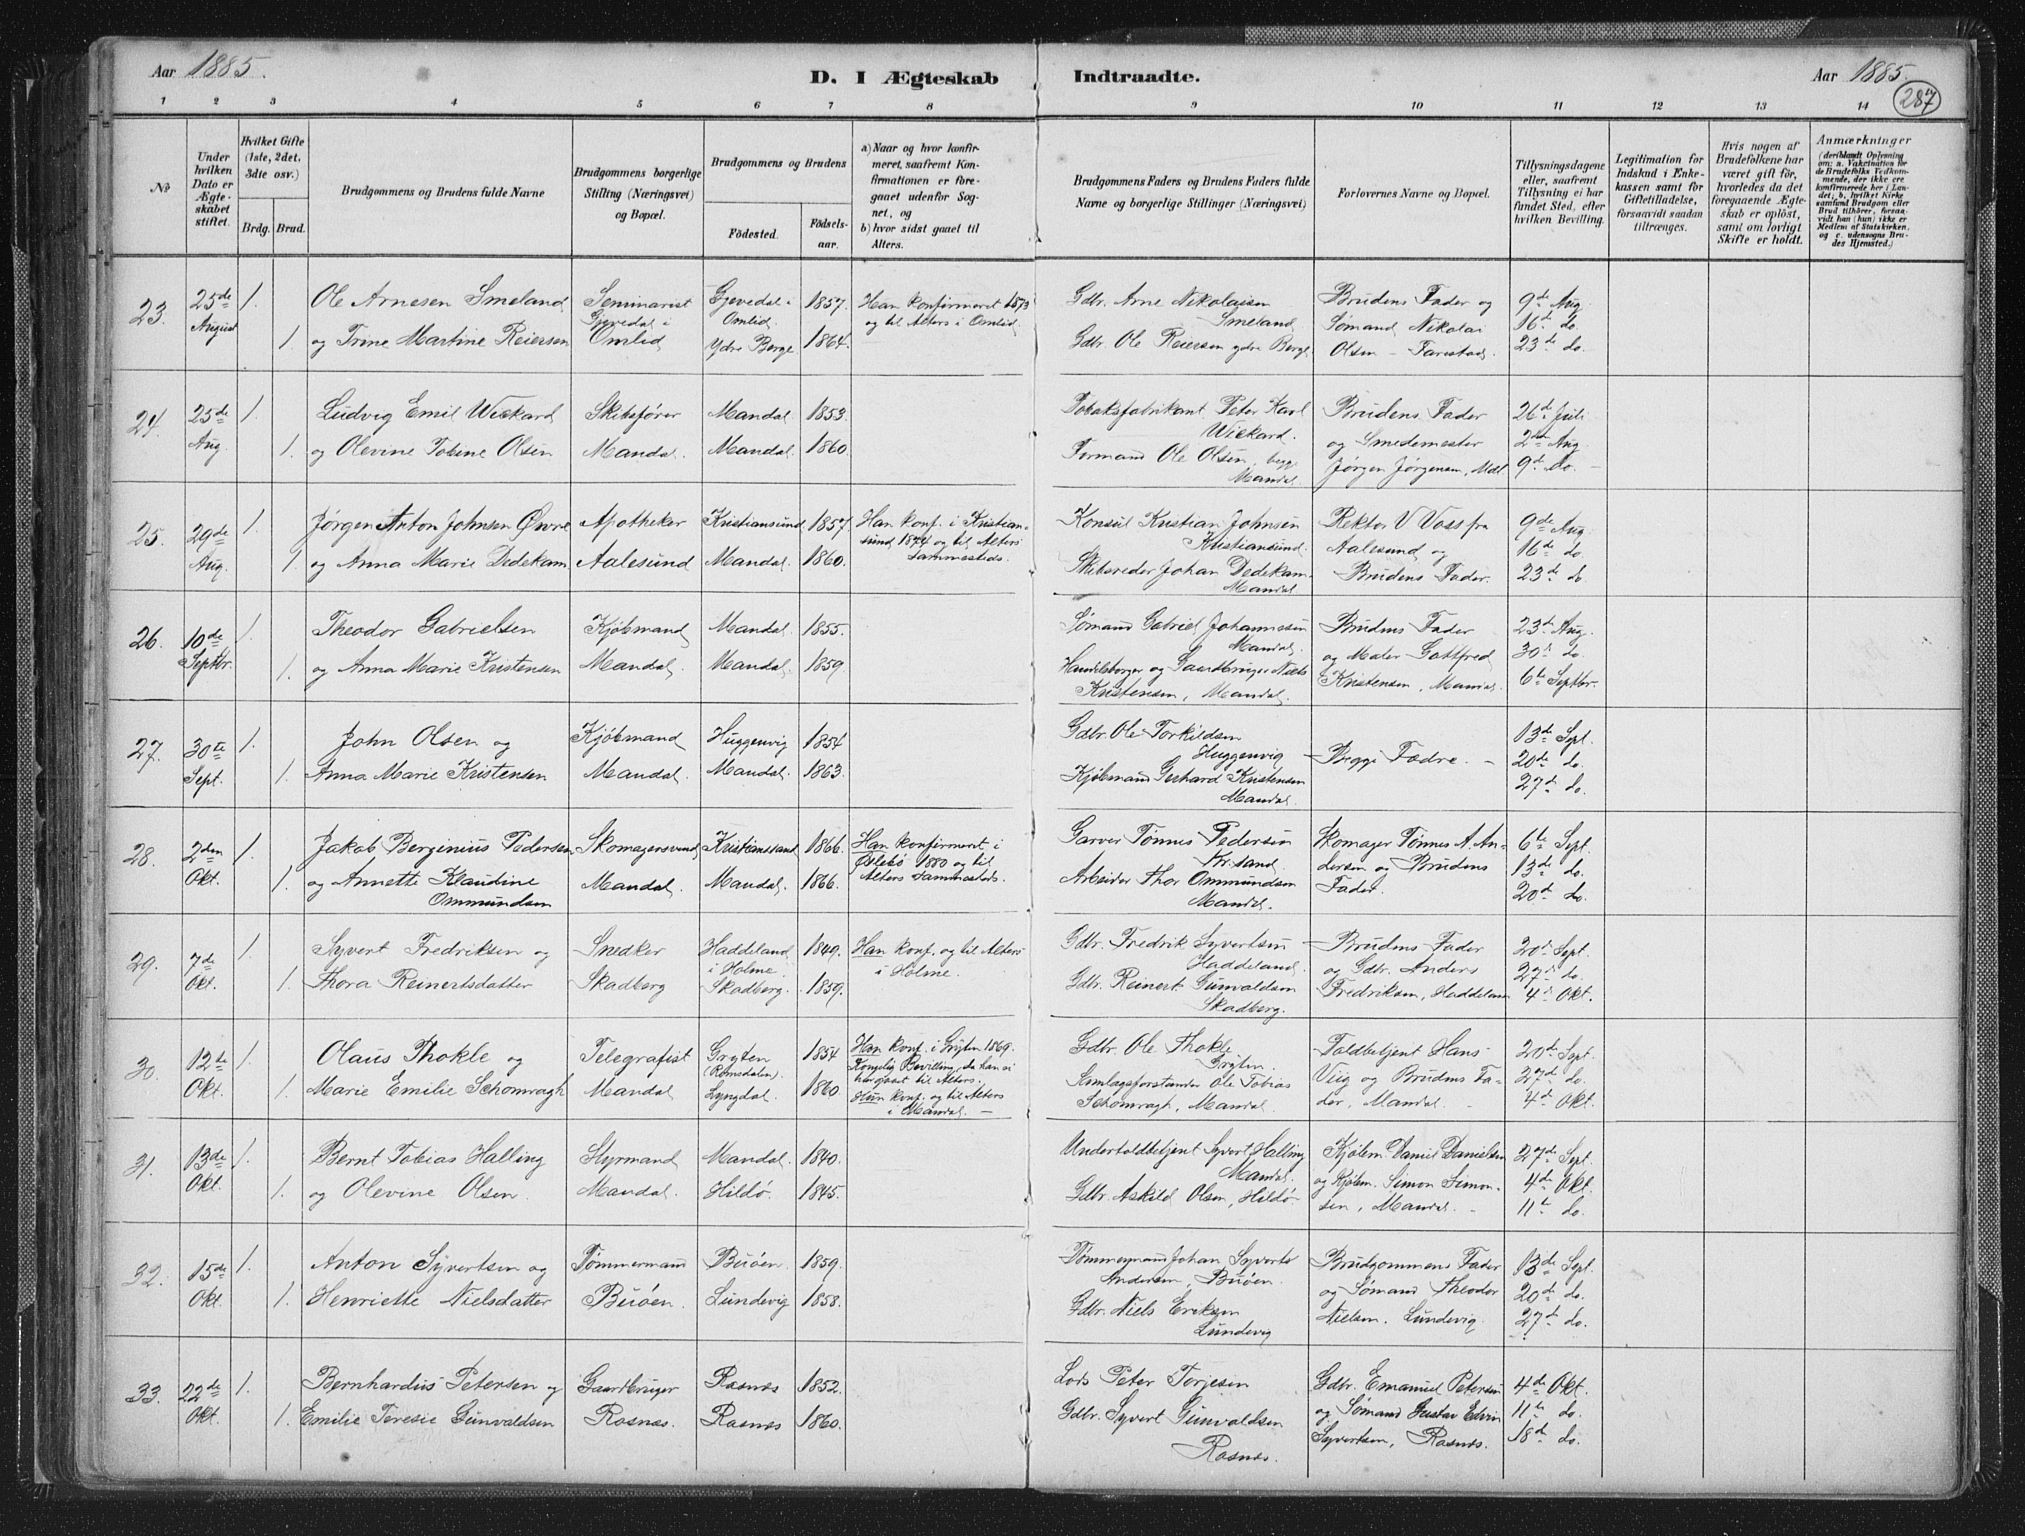 Aar 1885.
D. I Ægteskab Indtraadte.
Aar 1885.
287
1 2 3 4 5 6 7 8 9 10 11 12 13 14
No
Under hvilken Dato er Ægteskabet stiftet.
Hvilket Gifte (1ste, 2det, 3die osv.)
Brdg. Brud.
Brudgommens og Brudens fulde Navne
Brudgommens borgerlige Stilling (Næringsvei) og Bopæl.
Brudgommens og Brudens
Fødested. Fødselsaar.
a) Naar og hvor konfirmeret, saafremt Konfirmationen er foregaaet udenfor Sognet, og
b) hvor sidst gaaet til Alters.
Brudgommens Faders og Brudens Faders fulde Navne og borgerlige Stillinger (Næringsvei)
Forlovernes Navne og Bopæl.
Tillysningsdagene eller, saafremt Tillysning ei har fundet Sted, efter hvilken Bevilling.
Legitimation for Indskud i Enkekassen samt for Giftetilladelse, forsaavidt saadan tiltrænges.
Hvis nogen af Brudefolkene har været gift før, hvorledes da det foregaaende Ægteskab er opløst, samt om lovligt Skifte er holdt.
Anmærkninger
(deriblandt Oplysning om: a. Vakcination for de Brudefolks Vedkommende, der ikke ere konfirmerede her i Landet; b. hvilket Kirkesamfund Brudgom eller Brud tilhører, forsaavidt han (hun) ikke er Medlem af Statskirken, og c. udensogns Brudes Hjemsted.)
23. 25de August 1. Ole Arnesen Smeland Seminarist Gjevedal i Omlid Gjevedal i Omlid 1857. Han konfirmeret 1873 og til Alters i Omlid. Gdbr. Arne Nikolaisen Smeland Brudens Fader og 9de Aug
1. og Trine Martine Reiersen Ydre Berge 1864. Gdbr. Ole Reiersen ydre Berge Sømand Nikolai Olsen - Farestad. 16de do. 23de do.
24. 25de Aug. 1. Ludvig Emil Wiekard Skibsfører Mandal 1853. Tobaksfabrikant Peter Karl Wiekard. Brudens Fader 26de Juli
1. og Olevine Tobine Olsen Mandal. Mandal. 1860. Formand Ole Olsen, begge Mandal. og Smedemester Jørgen Jørgensen, Mdal 2den Aug 9de do.
25. 29de Aug. 1. Jørgen Anton Johnsen Øwre Apotheker Kristiansund 1857. Han konf. i Kristiansund 1874 og til Alters sammesteds. Konsul Kristian Johnsen Kristiansund. Rektor V Voss fra 9de Aug
1. og Anna Marie Dedekam Aalesund Mandal. 1860. Skibsreder Johan Dedekam Mandal Aalesund og Brudens Fader. 16de do. 23de do.
26. 10de Septbr. 1. Theodor Gabrielsen Kjøbmand Mandal 1855. Sømand Gabriel Johannesen Mandal. Brudens Fader 23de Aug.
1. og Anna Marie Kristensen Mandal. Mandal. 1859 Handelsborger og Gaardbruger Niels Kristensen, Mandal. og Maler Gottfred Kristensen, Mandal. 30te do. 6te Septbr.
27. 30te Sept. 1. John Olsen og Kjøbmand Huggenvig 1854 Gdbr. Ole Torkildsen Huggenvig Begges Fædre. 13de Sept.
1. Anna Marie Kristensen Mandal. Mandal. 1863. Kjøbmand Gerhard Kristensen Mandal. 20de do. 27de do.
28. 2den Okt. 1. Jakob Berginius Pedersen Skomagersvend Kristianssand 1866. Han konfirmeret i Øslebø 1880 og til Alters sammesteds. Garver Tønnes Pedersen Kr.sand. Skomager Tønnes A. Andersen og Brudens Fader. 6te Sept.
1. og Annette Klaudine Ommundsen Mandal. Mandal. 1866. Arbeider Thor Ommundsen Mandal. 13de do. 20de do.
29. 7de Okt. 1. Syvert Fredriksen og Snedker Haddeland i Holme. 1849. Han konf. og til Alters i Holme. Gdbr. Fredrik Syvertsen Haddeland. Brudens Fader 20de Sept.
1. Thora Reinertsdatter Skadberg Skadberg. 1859. Gdbr. Reinert Gunvaldsen Skadberg. og Gdbr. Anders Fredriksen, Haddeland 27de do. 4de Okt.
30 12te Okt. 1. Olaus Thokle og Telegrafist Gryten (Romsdalen) 1854 Han konf. i Gryten 1869. Kongelig Bevilling, da han ei har gaaet til Alters. Gdbr. Ole Thokle Gryten. Toldbetjent Hans 20de Sept.
1. Marie Emilie Schomragh Mandal Lyngdal. 1860. Hun konf. og til Alters i Mandal. Samlagsforstander Ole Tobias Schomragh, Mandal. Vüg og Brudens Fader, Mandal. 27de do. 4de Okt.
31. 13de Okt. 1. Bernt Tobias Halling Styrmand Mandal. 1840. Undertoldbetjent Syvert Halling Mandal. Kjøbm. Daniel Danielsen 27de Sept.
1. og Olevine Olsen. Mandal. Hildø. 1845. Gdbr. Askild Olsen, Hildø. og Kjøbm. Simon Simonsen, Mandal. 4de Okt. 11te do.
32. 15de Okt. 1. Anton Syvertsen og Tømmermand Buøen. 1859. Tømmermand Johan Syvert Andersen, Buøen. Brudgommens Fader 13de Sept.
1. Henriette Nielsdatter Buøen. Lundevig 1858. Gdbr. Niels Eriksen Lundevig og Sømand Theodor Nielsen. Lundevig. 20de do. 27de do.
33. 22de Okt. 1. Bernhardus Petersen og Gaardbruger Rosnes 1852. Lods Peter Terjesen Gdbr. Emanuel Petersen 4de Okt.
1. Emilie Teresie Gunvaldsen Rosnæs. Rosnæs 1860. Gdbr. Syvert Gunvaldsen Rosnæs. og Sømand Gustav Edvin Syvertsen, Rosnæs. 11te do. 18de do.